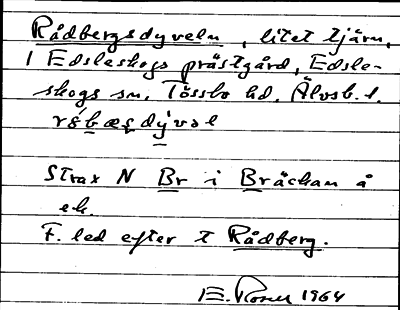 Rådbergsdyveln, litet tjärn,
i Edsleskogs prästgård, Edsle-
skogs sn, Tössbo hd, Älvsb. l.
Strax N Br i Bräckan å
ek.
F. led efter t Rådberg.
E. Rosell 1964